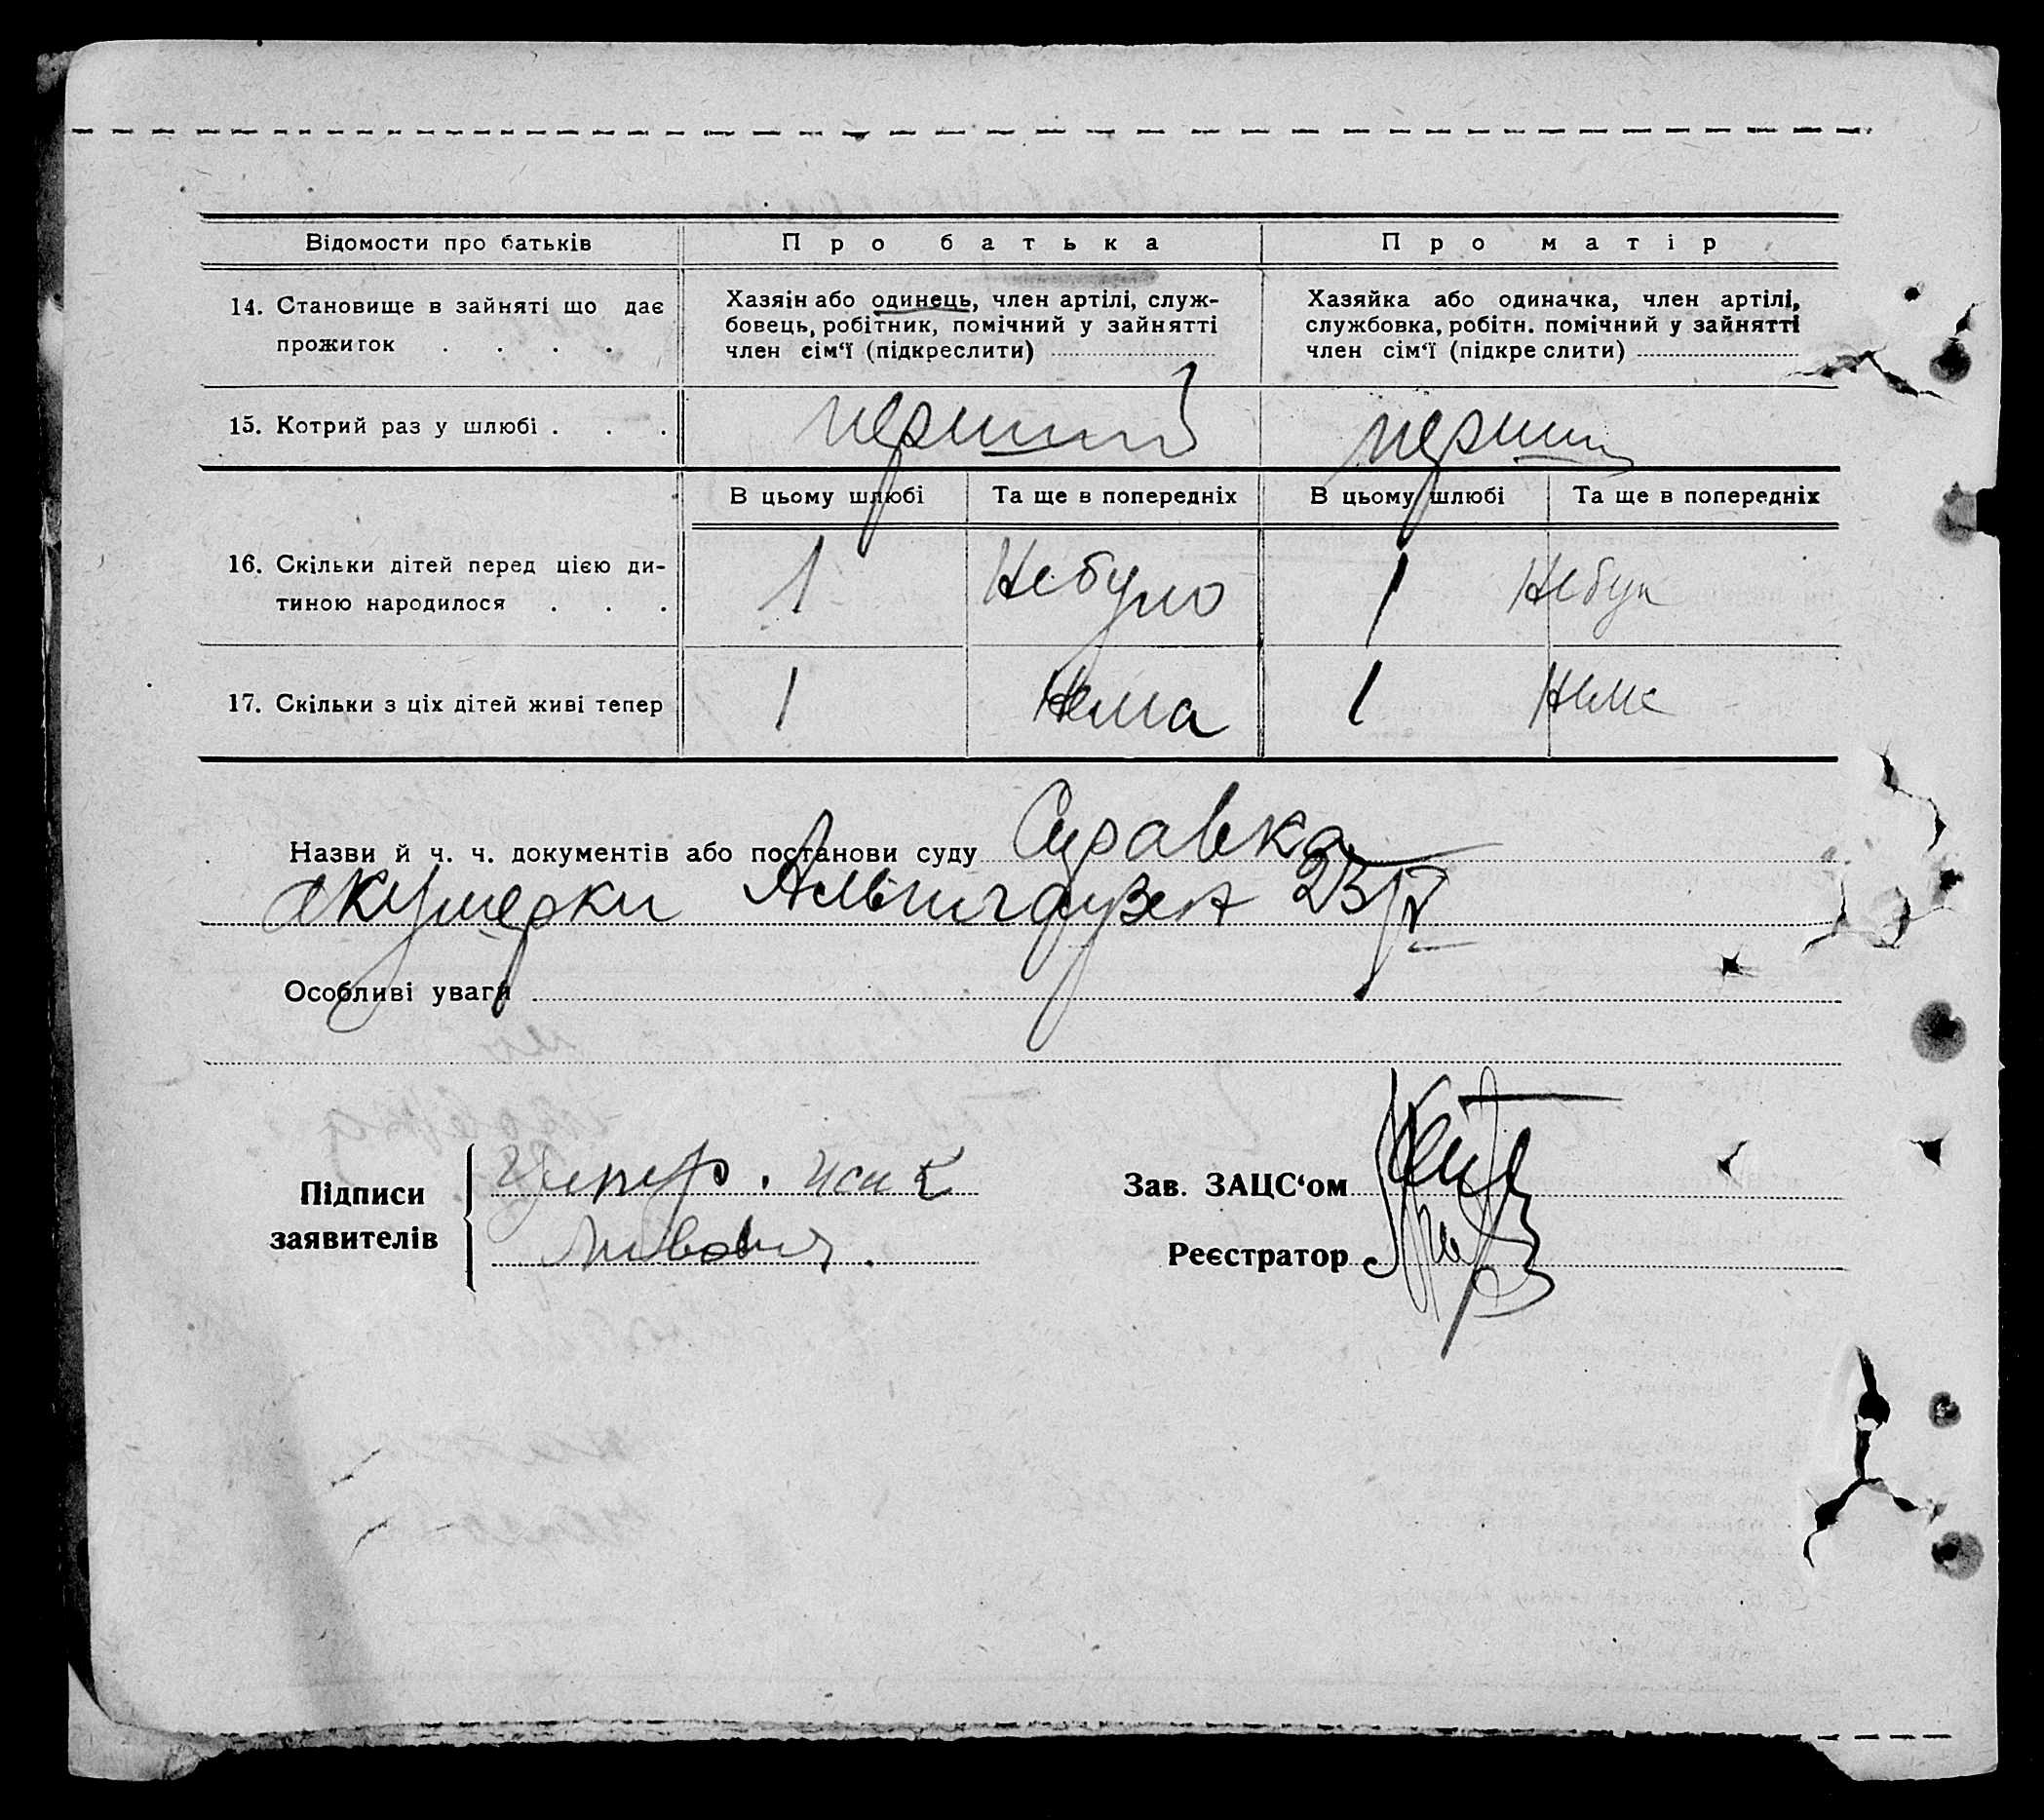 Відомости про батьків
Про батька
Про матір
14. Становище в зайняті що дає
прожиток . . . .
Хазяїн або одинець, член артілі, служ-
бовець, робітник, помічний у зайнятті
член сім‘ї (підкреслити)
Хазяйка або одиначка, член артілі,
службовка, робітн. помічний у зайнятті
член сім‘ї (підкре слити)
15. Котрий раз у шлюбі . . .
перший
перший
В цьому шлюбі
Та ще в попередніх
В цьому шлюбі
Та ще в попередніх
16. Скільки дітей перед цією ди-
тиною народилося . . .
1
Небуло
1
Небул
17. Скільки з ціх дітей живі тепер
1
Нема
1
Неме
Назви й ч. ч. документів або постанови суду Справка
акушерки 23/V
Особливі уваги
Підписи
заявителів
Зав. ЗАЦС‘ом
Реєстратор